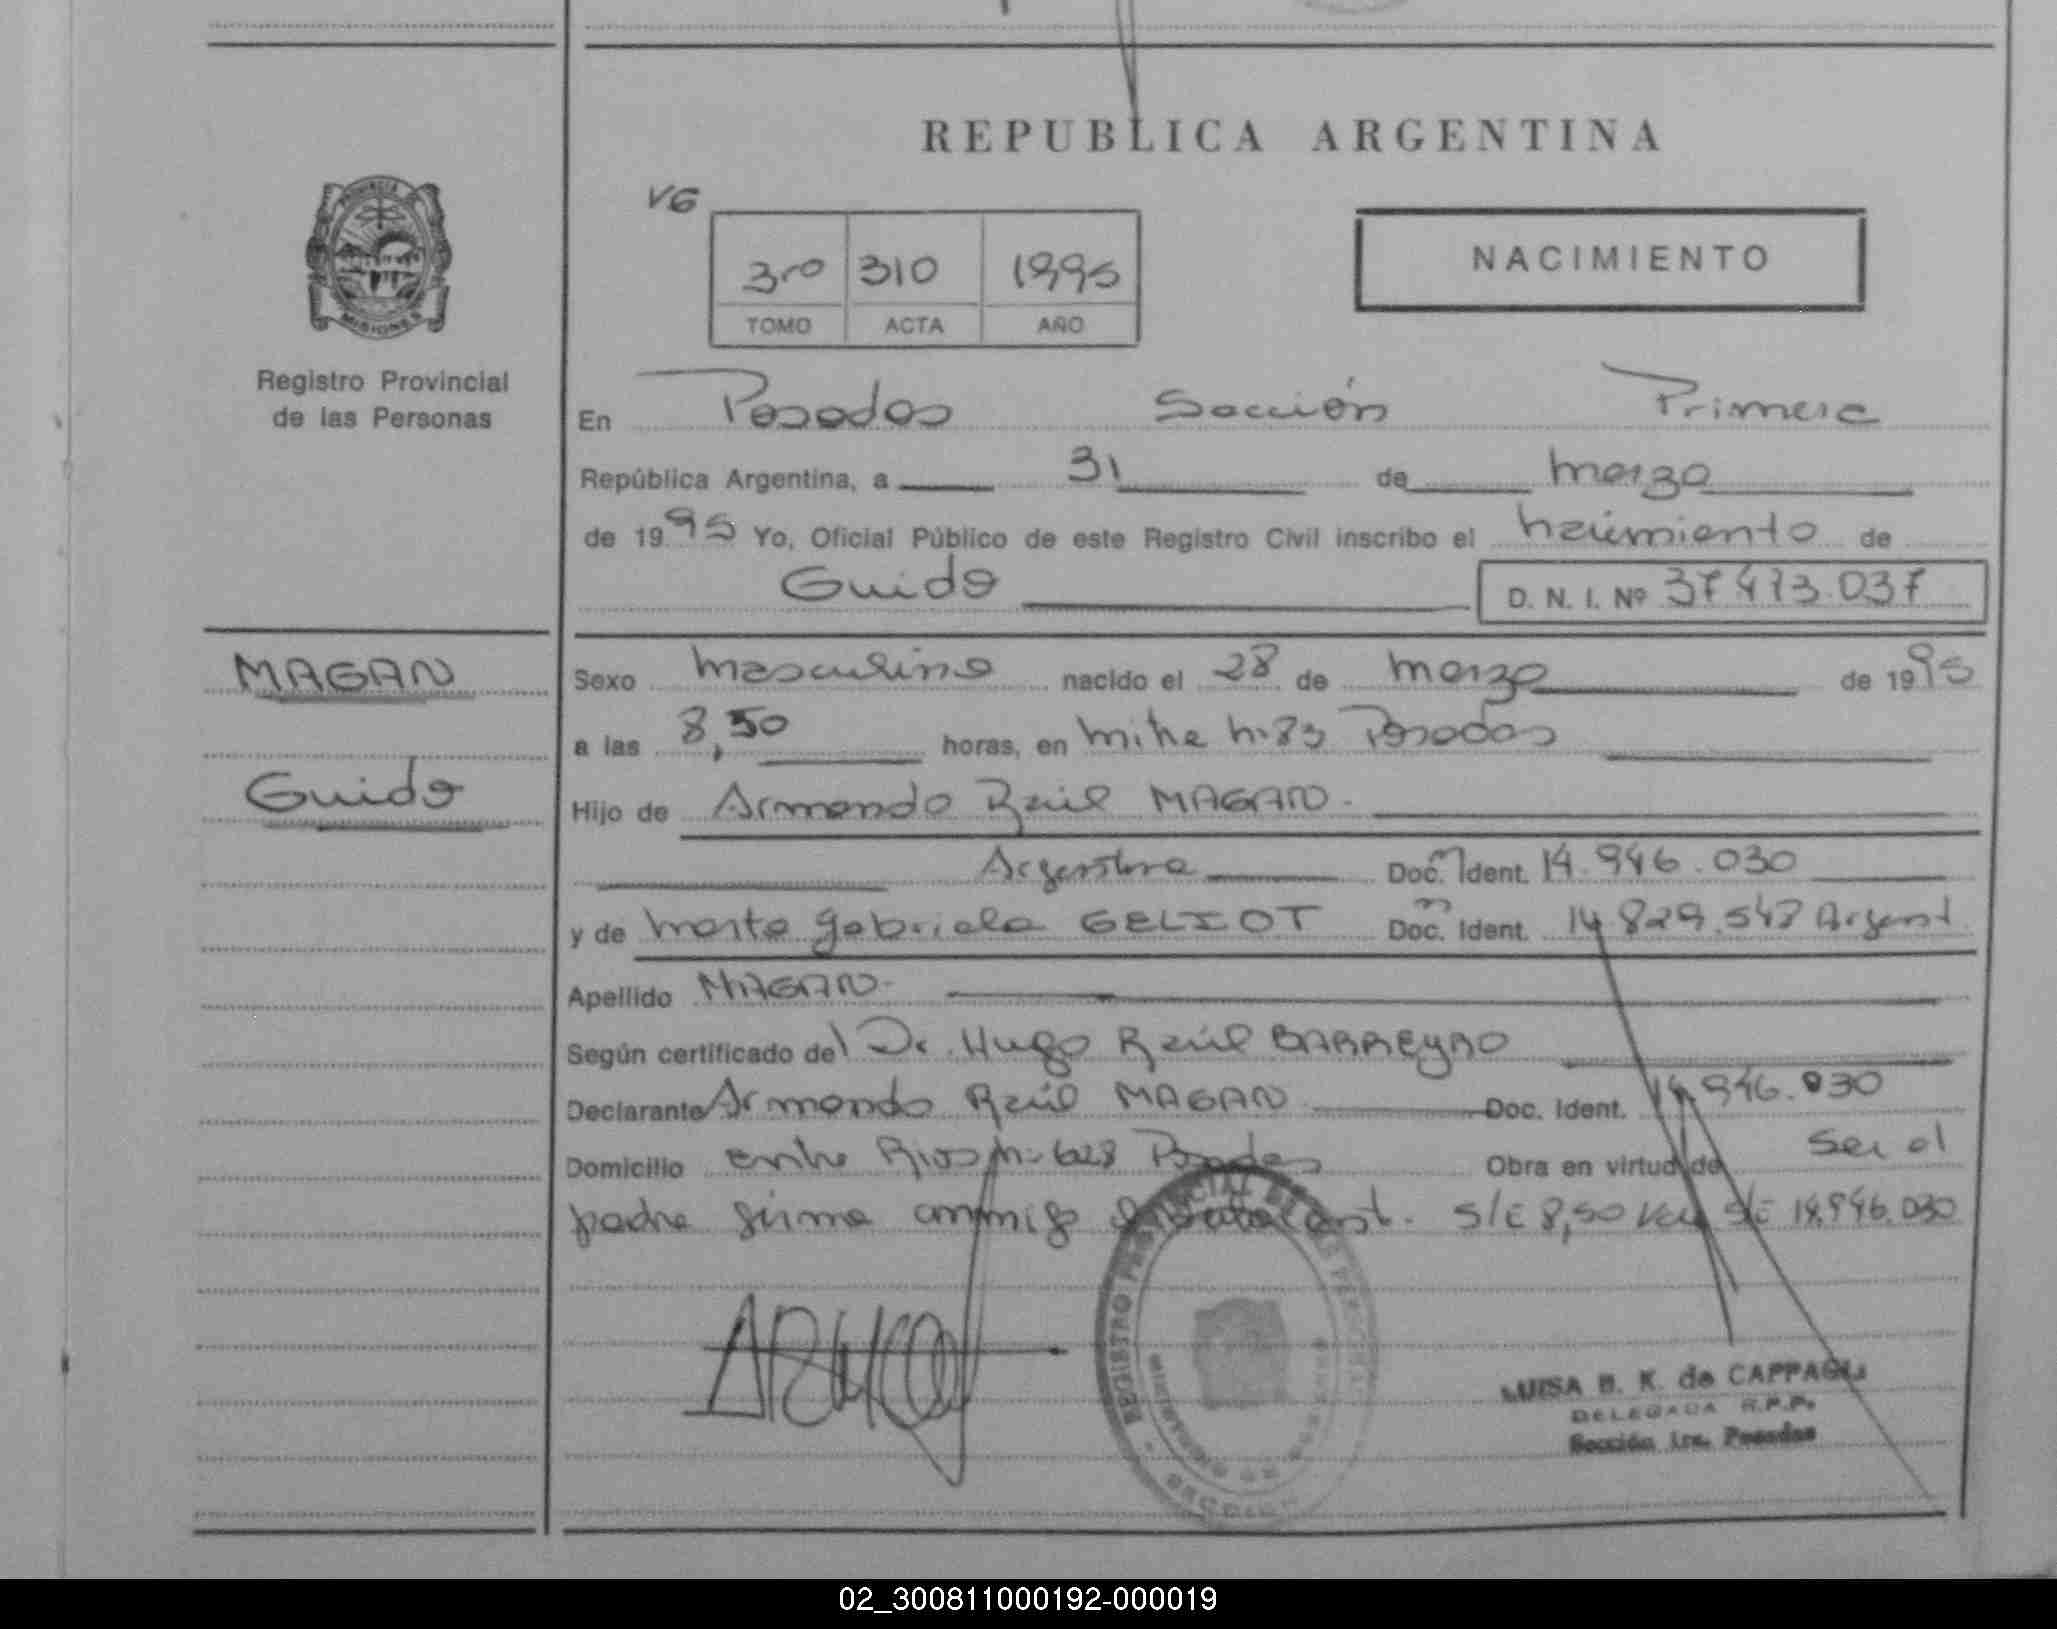 REPUBLICA ARGENTINA
PROVINCIA
MISIONES
Registro Provincial
de las Personas
VG
3ro 310 1995
TOMO ACTA AÑO
NACIMIENTO
En Posadas Sección Primera
República Argentina, a 31 de marzo
de 1995 Yo, Oficial Público de este Registro Civil inscribo el nacimiento de
Guido D. N. I. Nº 37.473.037
MAGAN
Guido
Sexo masculino nacido el 28 de marzo de 1995
a las 8,50 horas, en mitre n: 83 Posadas
Hijo de Armando Raúl MAGAN.
Argentina Doc. Ident. 14.946.030
y de Marta Gabriela GELIOT Doc. Ident. 14.829.543 Argent.
Apellido MAGAN.
Según certificado del Dr. Hugo Raúl BARREYRO
Declarante Armando Raúl MAGAN Doc. Ident. 14.946.030
Domicilio Entre Rios n: 628 Posadas Obra en virtud de Ser el
padre firma conmigo S/E 8,50 Vale S/E 14.946.030
REGISTRO PROVINCIAL DE LAS PERSONAS
MISIONES
SECCION
LUISA B. K. de CAPPAGLI
DELEGADA R.P.P.
Sección 1ra. Posadas
02_300811000192-000019